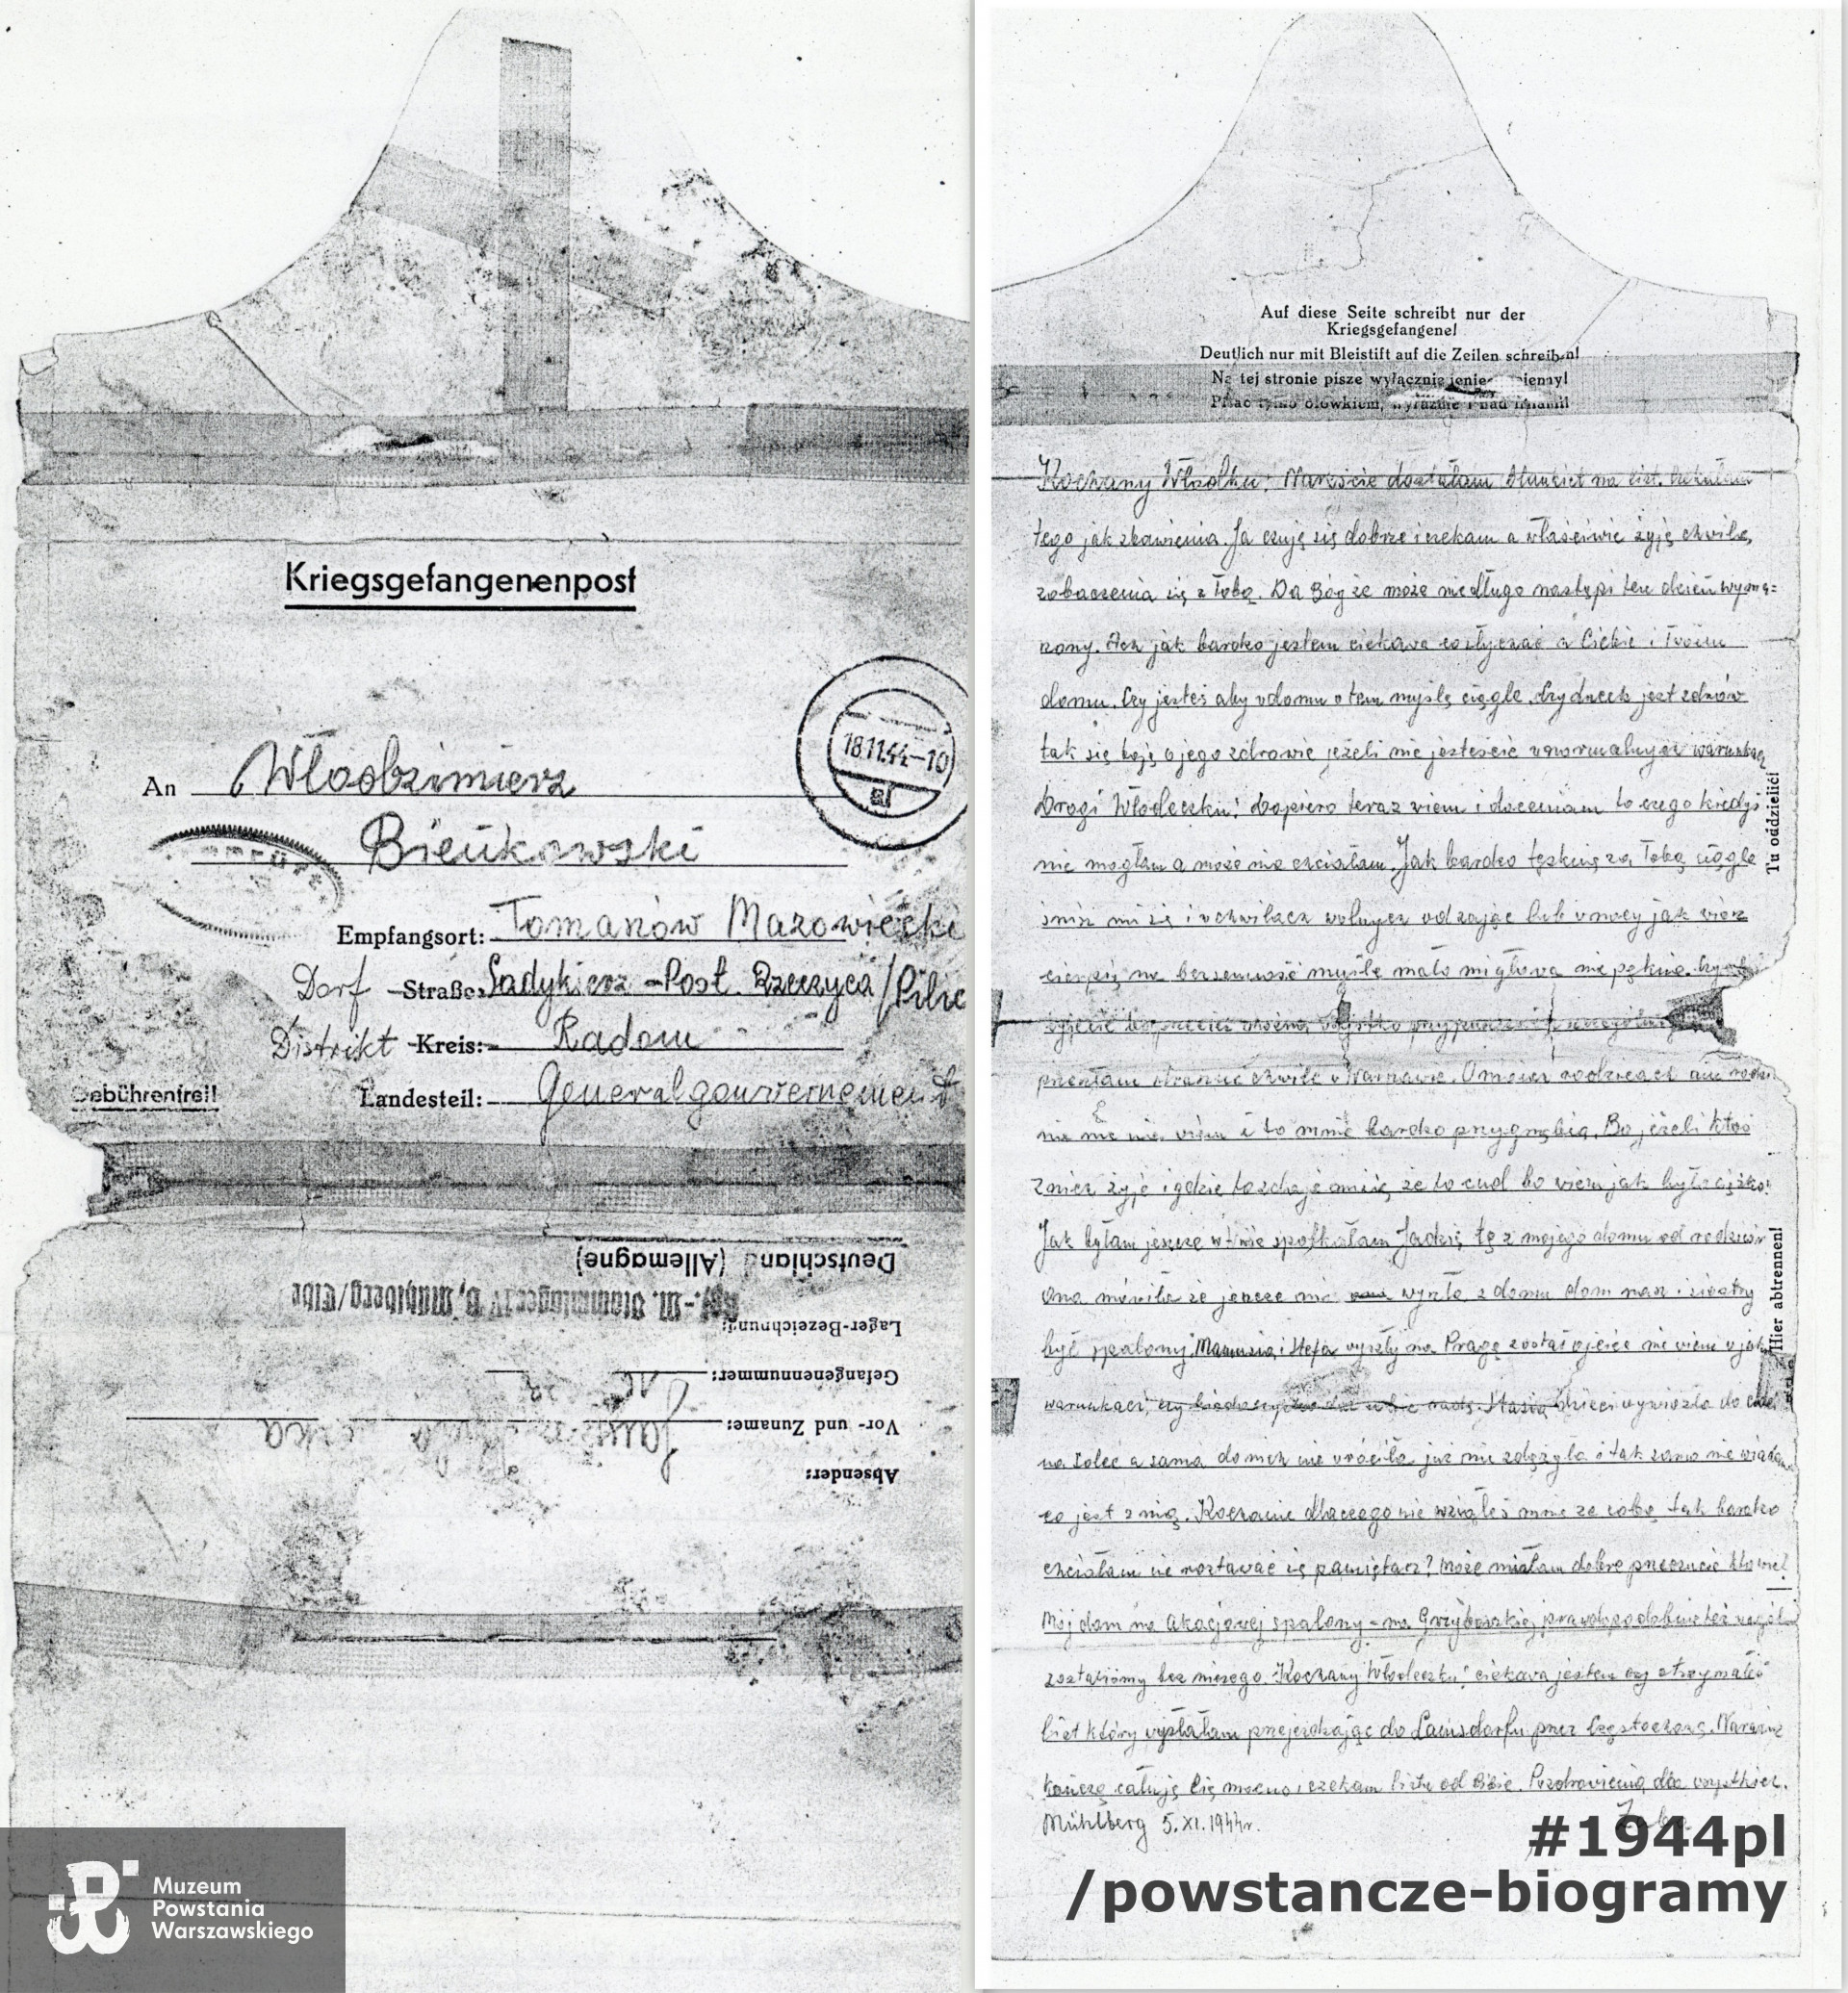 Kriegsgefangenenpost
18.11.44-10
An Włodzimierz
Bieńkowski
Empfangsort: Tomaszów Mazowiecki
Dorf -Straße: Sadykierz - Post. Rzeczyca / Pilic
Distrikt -Kreis: Radom
Gebührenfrei! Landesteil: Generalgouvernement
Deutschland (Allemagne)
Kgf.-M. Stammlager IV B, Mühlberg/Elbe
Lager-Bezeichnung:
Gefangenennummer:
Vor- und Zuname:
Absender:
Muzeum
Powstania
Warszawskiego
Auf diese Seite schreibt nur der
Kriegsgefangene!
Deutlich nur mit Bleistift auf die Zeilen schreiben!
Na tej stronie pisze wyłącznie jeniec
Pisać tylko ołówkiem, wyraźnie i nad liniami!
Kochany Włodku! Nareszcie dostałam blankiet na list. Czekałam
tego jak zbawienia. Ja czuję się dobrze i czekam a właściwie żyję chwilą,
zobaczenia się z Tobą. Da Bóg że może niedługo nastąpi ten dzień wyma=
rzony. Ach jak bardzo jestem ciekawa co słychać u Ciebie i Twoim
domu. Czy jesteś aby w domu o tem myślę ciągle. Czy Jacek jest zdrów
tak się boję o jego zdrowie jeżeli nie jesteście w normalnych warunkach
Drogi Włodeczku! Dopiero teraz wiem i doceniam to czego kiedyś
nie mogłam a może nie chciałam. Jak bardzo tęsknię za Tobą ciągle
śnisz mi się i w chwilach wolnych w dzające lub w nocy jak wiesz
cierpię na bezsenność myślę mało mi głowa nie pęknie.
żyjecie bo przecież można wszystko
straszne chwile w Warszawie. O moich rodzicach ani rodzi
nie nic nie wiem i to mnie bardzo przygnębia. Bo jeżeli ktoś
z nich żyje i gdzie to zdaje mi się że to cud bo wiem jak było ciężko!
Jak byłam jeszcze w spotkałam Jadzię tę z mojego domu od rodziców
Ona mówiła że jeszcze nie wyszła z domu dom nasz i siostry
był spalony, Mamusia i Stefa wyszły na Pragę został ojciec nie wiem w jakich
warunkach, czy biedaczysko dał sobie radę. Stasia dzieci wywiozła do
na Solec a sama do nich nie wróciła już nie zdążyła i tak samo nie wiadomo
co jest z nią. Kochanie dlaczego nie wziąłeś mnie ze sobą tak bardzo
chciałam nie rozstawać się pamiętasz? Może miałam dobre przeczucie kto wie?
Mój dom na Akacjowej spalony - na Grzybowskiej prawdopodobnie też
zostaliśmy bez niczego. Kochany Włodeczku! ciekawa jestem czy otrzymałeś
list który wysłałam przejeżdżając do Lamsdorfu przez Częstochowę. Narazie
kończę całuję Cię mocno i czekam listu od Ciebie. Pozdrowienia dla wszystkich.
Mühlberg 5.XI.1944r.
Tu oddzielić!
Hier abtrennen!
#1944pl
/powstancze-biogramy